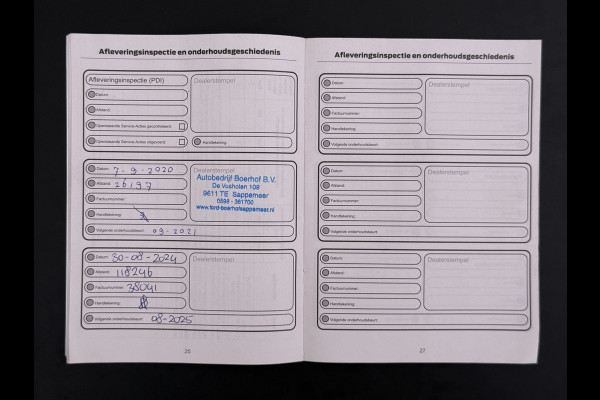 Afleveringsinspectie en onderhoudsgeschiedenis
Afleveringsinspectie (PDI)
Dealerstempel
Datum:
Afstand:
Openstaande Service-Acties gecontroleerd:
Openstaande Service-Acties uitgevoerd:
Handtekening:
Datum: 7-9-2020
Dealerstempel
Autobedrijf Boerhof B.V.
De Vosholen 109
9611 TE Sappemeer
0598 - 361700
www.ford-boerhofsappemeer.nl
Afstand: 26197
Factuurnummer:
Handtekening:
Volgende onderhoudsbeurt: 09-2021
Datum: 30-08-2024
Dealerstempel
Afstand: 118246
Factuurnummer: 38041
Handtekening:
Volgende onderhoudsbeurt: 08-2025
Afleveringsinspectie en onderhoudsgeschiedenis
Datum:
Dealerstempel
Afstand:
Factuurnummer:
Handtekening:
Volgende onderhoudsbeurt:
Datum:
Dealerstempel
Afstand:
Factuurnummer:
Handtekening:
Volgende onderhoudsbeurt:
Datum:
Dealerstempel
Afstand:
Factuurnummer:
Handtekening:
Volgende onderhoudsbeurt:
27